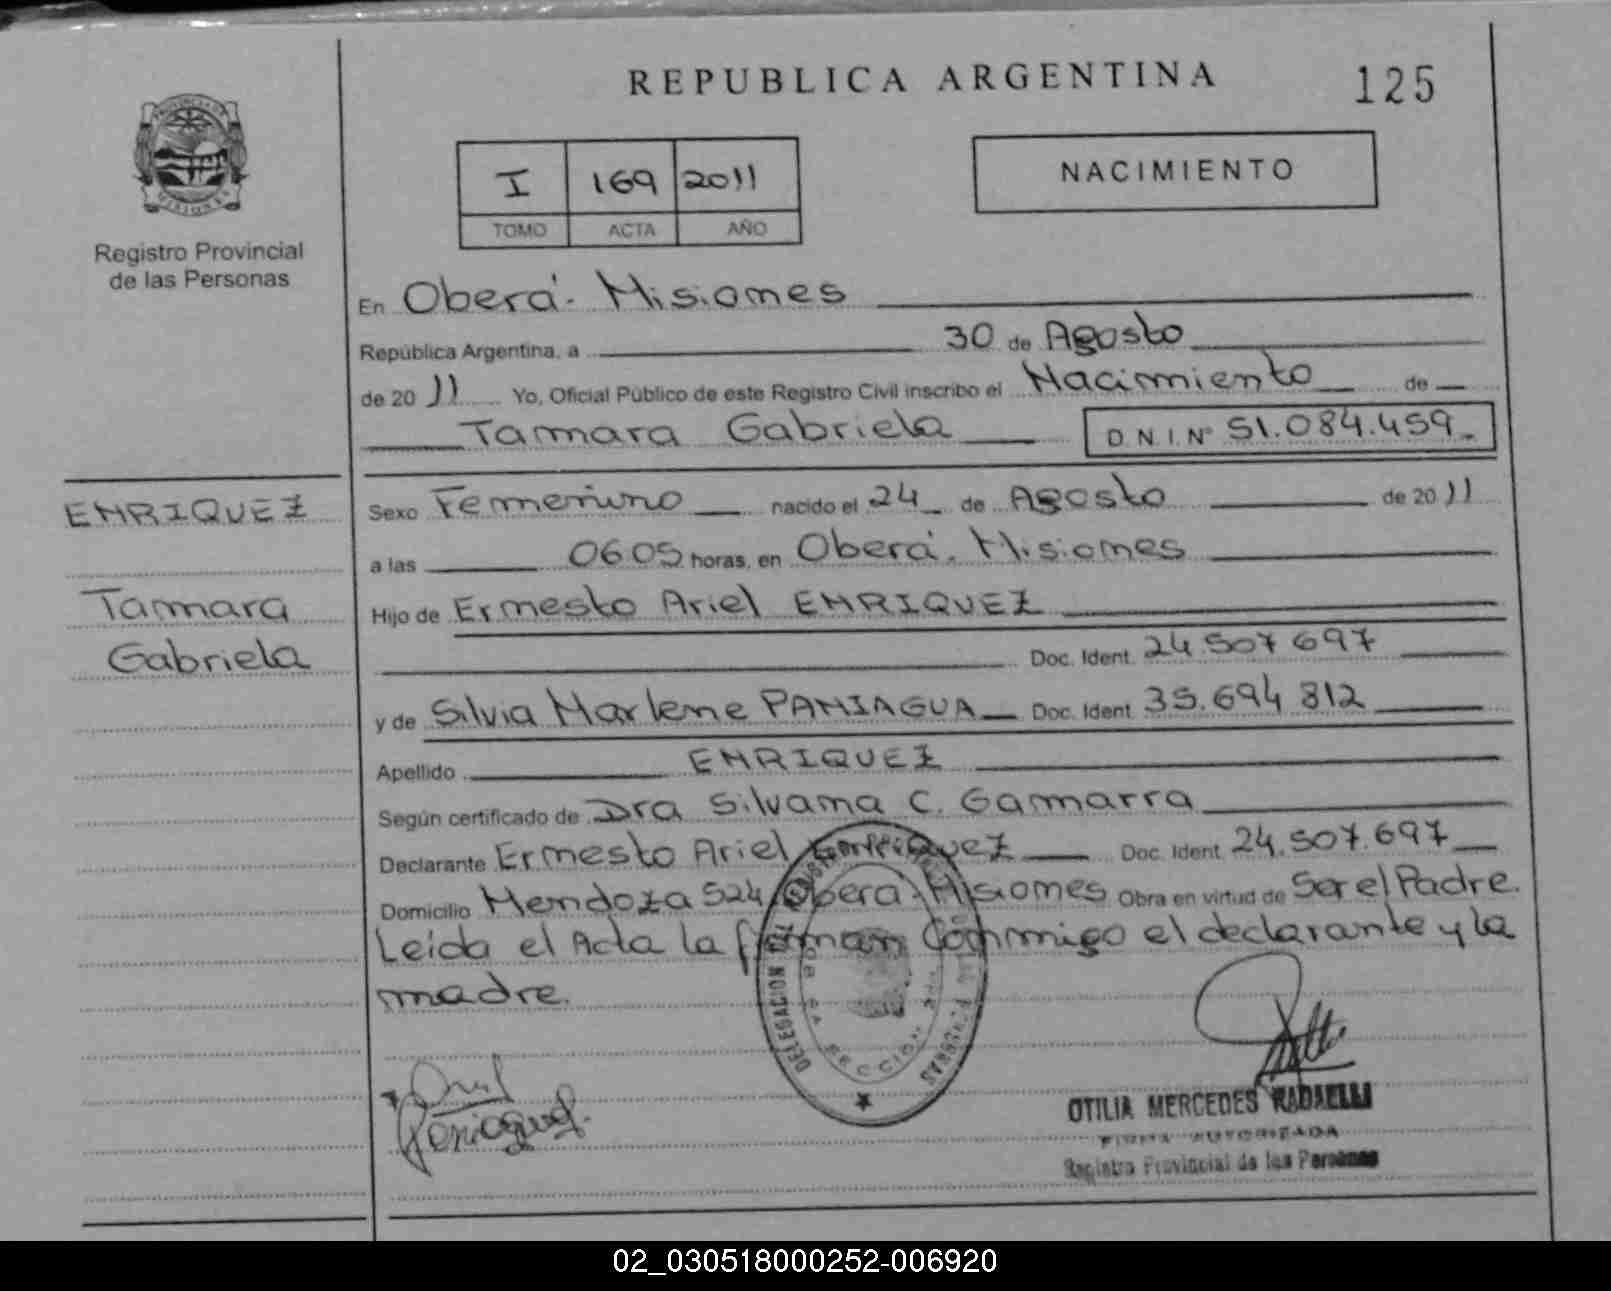 REPUBLICA ARGENTINA
125
PROVINCIA DE
MISIONES
Registro Provincial
de las Personas
I 169 2011
TOMO ACTA AÑO
NACIMIENTO
En Oberá - Misiones
República Argentina, a 30 de Agosto
de 2011 Yo, Oficial Público de este Registro Civil inscribo el Nacimiento de
Tamara Gabriela D.N.I.Nº 51.084.459
ENRIQUEZ
Tamara
Gabriela
Sexo Femenino nacido el 24 de Agosto de 2011
a las 06.05 horas, en Oberá. Misiones
Hijo de Ernesto Ariel ENRIQUEZ
Doc. Ident. 24.507.697
y de Silvia Marlene PANIAGUA Doc. Ident. 35.694.812
Apellido ENRIQUEZ
Según certificado de Dra Silvana C. Gamarra
Declarante Ernesto Ariel Enriquez Doc. Ident. 24.507.697
Domicilio Mendoza 524 Oberá - Misiones Obra en virtud de Ser el Padre.
Leida el Acta la firman conmigo el declarante y la
madre.
DELEGACION
SECCION
OTILIA MERCEDES RADAELLI
FIRMA AUTORIZADA
Registro Provincial de las Personas
02_030518000252-006920